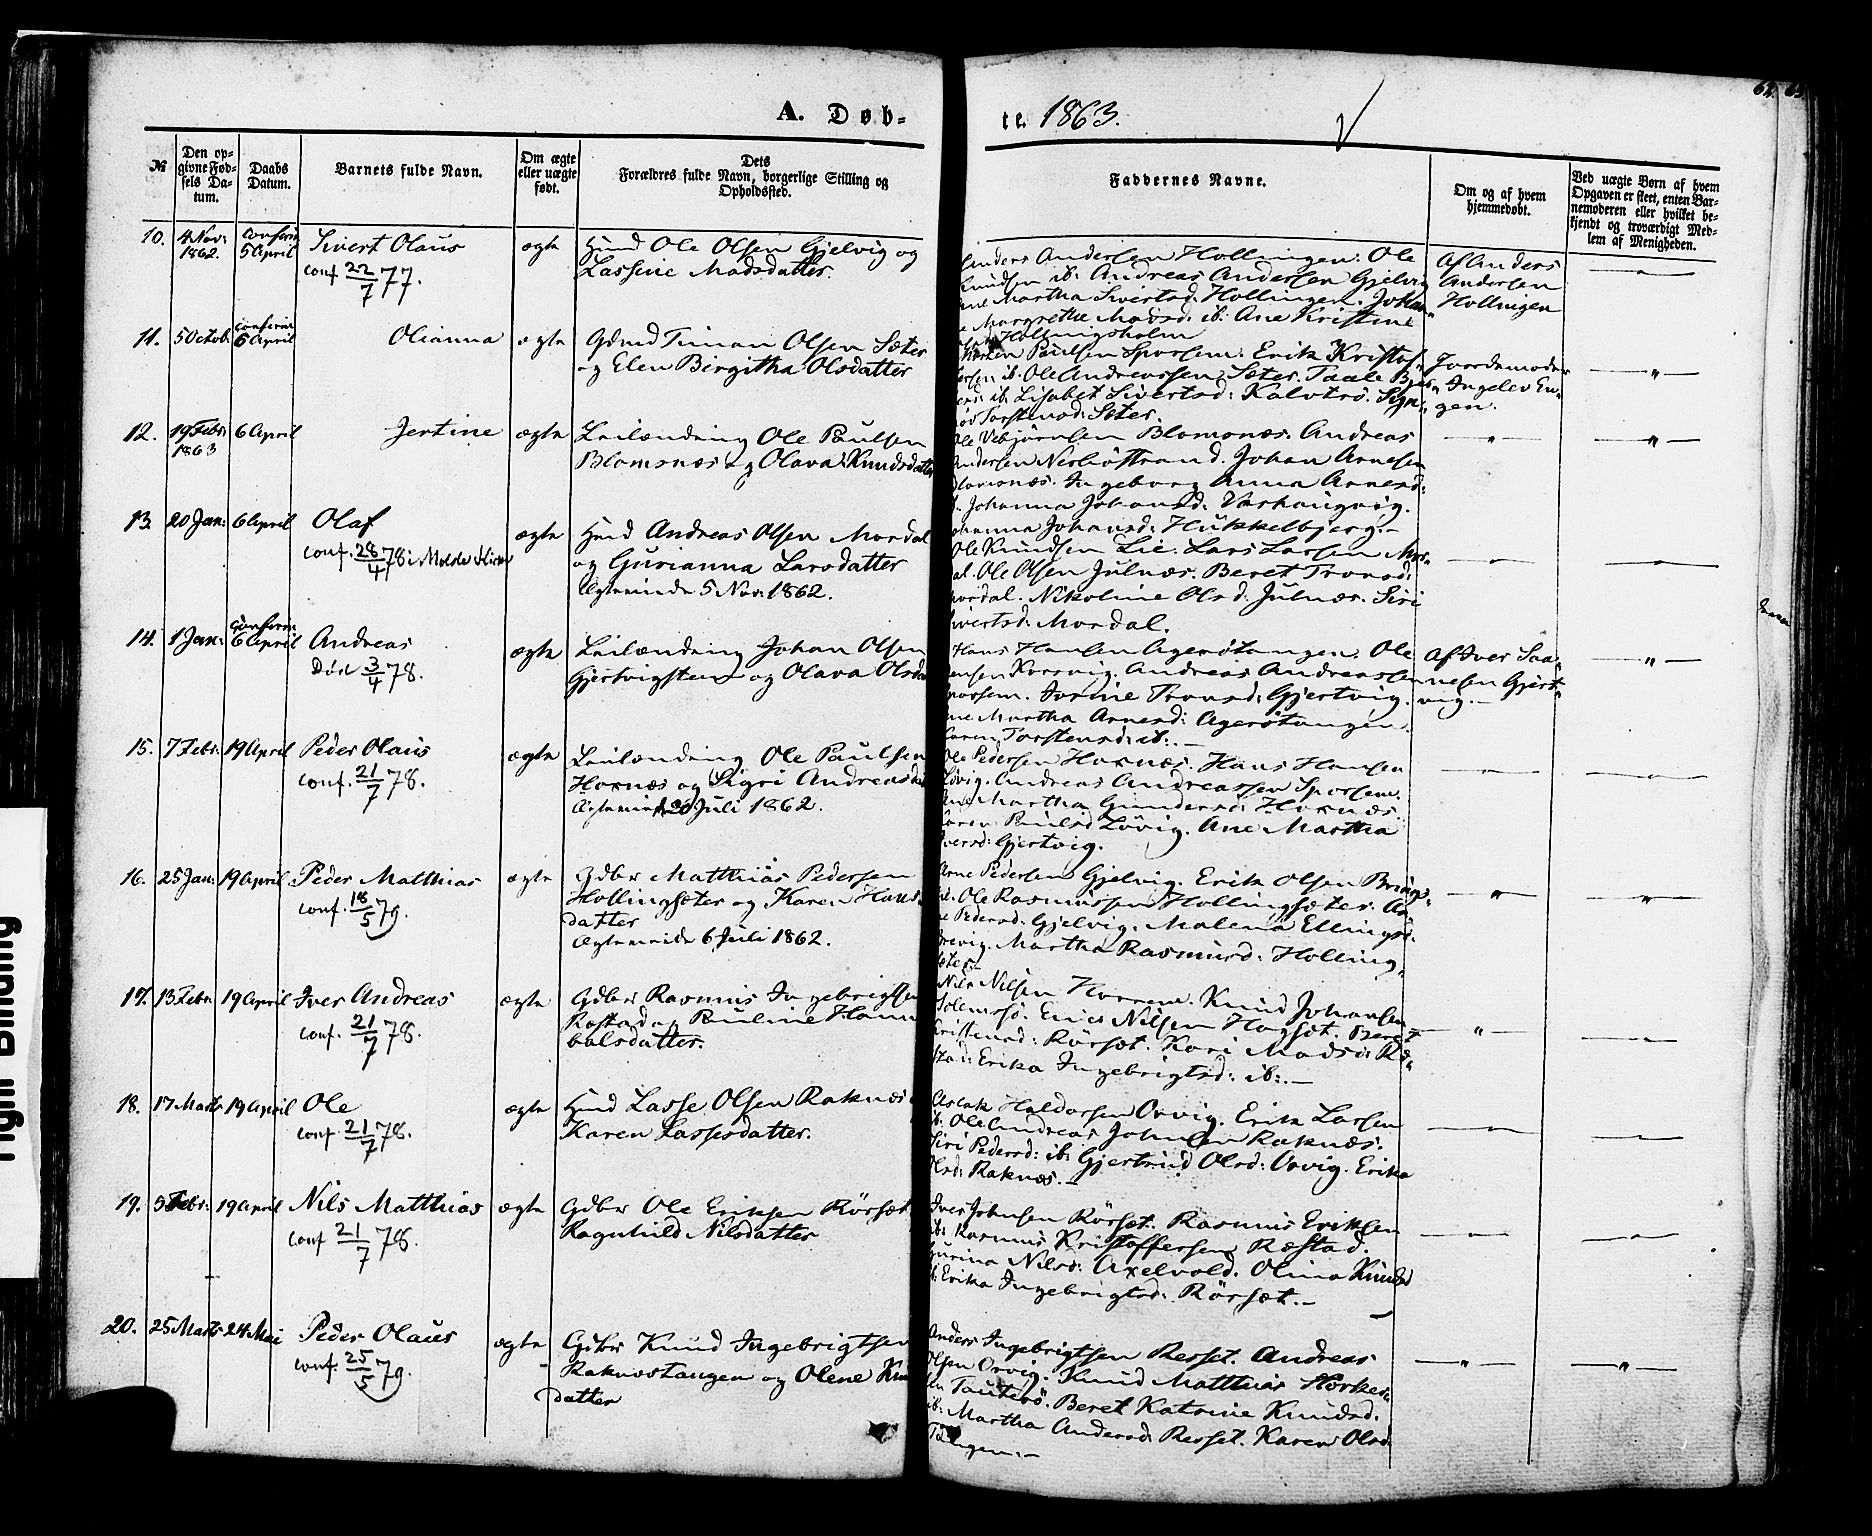 A. Døb-
te. 1863.
№
Den op-
givne Fød-
sels Da-
tum.
Daabs
Datum.
Barnets fulde Navn.
Om ægte
eller uægte
født.
Dets
Forældres fulde Navn, borgerlige Stilling og
Opholdssted.
Faddernes Navne.
Om og af hvem
hjemmedøbt.
Ved uægte Børn af hvem
Opgaven er skeet, enten Bar-
nemoderen eller hvilket be-
kjendt og troværdigt Med-
lem af Menigheden.
10. 4 Nov: 1862. 5 April Sivert Olaus ægte Huusmd Ole Olsen Gjelvig og
conf 22/7 77. Lassine Madsdatter.
Anders Andersen Hollingen. Ole
Knudsen ib: Andreas Andersen Gjelvig
Martha Sivertsd. Hollingen. Johan-
Margrethe Madsd: ib: Ane Kristine
Hollingsholm
Af Anders
Andersen
Hollingen
11. 5 Octob. 6 April Olianna ægte Gdmd Timan Olsen Sæter
og Elen Birgitha Olsdatter
Paulsen Sporsem. Erik Kristof-
ib. Ole Andreassen Sæter.
ib: Lisabet Sivertsd: Kalvtrø.
Torstensd: Sæter.
Jordemoder
Ingelev En-
gen.
12. 19 Febr: 1863 6 April Jertine ægte Leilænding Ole Paulsen
Blomsnæs og Olava Knudsdatter
Ole Vebjørnsen Blomsnæs. Andreas
Andersen Nesbøstrand. Johan Arnesen
Blomsnæs. Ingeborg Anna Arnesd:
Johanna Johansd: Varhaugvig.
Johanna Johansd: Hukkelbjerg.-
13. 20 Jan: 6 April Olaf ægte Huusmd Andreas Olsen Mordal
conf. 28/4 78 i Molde Kirke og Gurianna Larsdatter
Ægteviede 5 Nov: 1862.
Ole Knudsen Lie. Lars Larsen Mor-
dal. Ole Olsen Julnæs. Beret Tronsd:
Mordal. Nikoline Olsd. Julnæs. Siri
Sivertsd: Mordal.
14. 1 Jan: 6 April Andreas ægte Leilænding Johan Olsen
Død 3/4 78. Gjertvigsteen og Olava Olsda
Hans Hansen Agerøtangen. Ole
Jensen Korsvig. Andreas Andreassen
Sporsem. Tronsd: Gjertvig.
Ane Martha Arnesd: Agerøtangen.
Karen Torstensd: ib:.-
Af Iver Saa-
mesen Gjert-
vig.-
15. 7 Febr: 19 April Peder Olaus ægte Leilænding Ole Paulsen
conf. 21/7 78. Hoxnæs og Sigri Andreasda
Ægteviede 20 Juli 1862.
Ole Pedersen Hoxnæs. Hans Hansen
Løvig. Andreas Andreassen Sporsem.
Ane Martha Gundersd: Hoxnæs.
Karen Paulsd Løvig. Ane Martha
Iversd: Gjertvig.
16. 25 Jan: 19 April Peder Matthias ægte Gdbr Matthias Pedersen
conf. 18/5 79. Hollingsæter og Karen Hans-
datter
Ægteviede 6 Juli 1862.
Arne Pedersen Gjelvig. Erik Olsen
Ole Rasmussen Hollingsæter.
Pedersd: Gjelvig. Malena Ellingsd.
Brevig. Martha Rasmusd: Holling-
sæter-
17. 13 Febr: 19 April Iver Andreas ægte Gdbr Rasmus Ingebrigtsen
conf. 21/7 78. Røstad og Pauline Hanni
balsdatter.
Nils Nilsen Horrem. Knud Johansen
Solemsø. Nilsen Hagset. Beret
Kristensd: Rørset. Kari Madsd: Rø-
stad: Erika Ingebrigtsd: ib:.-
18. 17 Marts 19 April Ole ægte Huusmd Lasse Olsen Raknæs
conf. 21/7 78. Karen Lassesdatter.
Aslak Haldorsen Orvig. Erik Larsen
ib. Ole Andreas Johnsen Raknæs.
Siri Pedersd: ib: Gjertrud Olsd: Orvig. Erika
Olsd: Raknæs.-
19. Febr: 19 April Nils Matthias ægte Gdbr Ole Eriksen Rørset
conf 21/7 78. Ragnhild Nilsdatter
Iver Johnsen Rørset. Rasmus Eriksen
ib: Rasmus Kristoffersen Røstad.
Gurina Nilsd: Axelvold. Olina Knudsd
ib: Erika Ingebrigtsd: Rørset.-
20. 25 Marts 24 Mai Peder Olaus ægte Gdbr Knud Ingebrigtsen
conf. 25/5 79. Raknestangen og Olene Knu
datter
Anders Ingebrigtsen Resset. Andreas
Olsen Orvig. Knud Matthias
Tauterø. Beret Katrine Knudsd.
ib: Martha Andersd. Resset. Karen Olsd.
Tangen.-